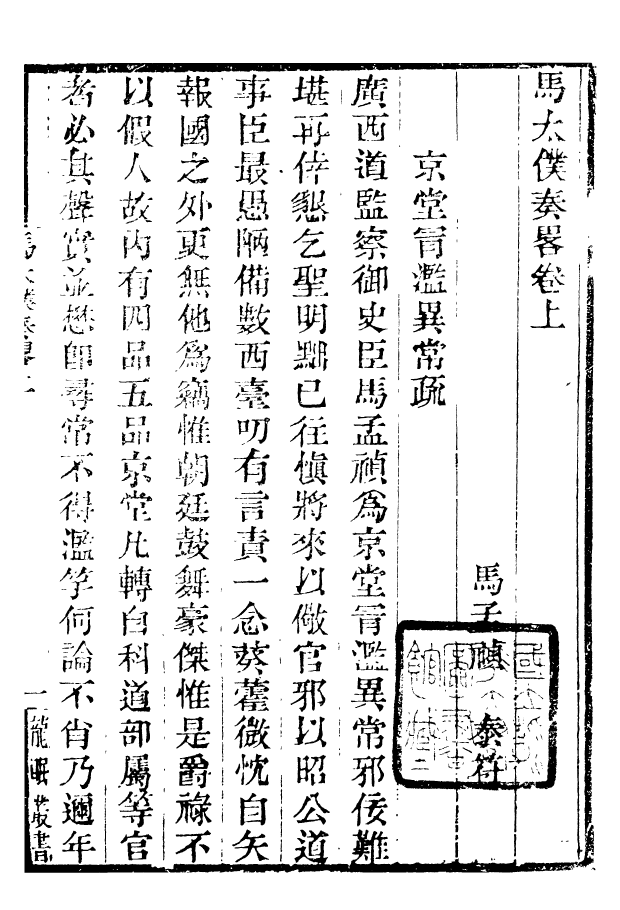 馬太僕奏畧卷上
馬孟禎 泰符
京堂冐濫異常疏
廣西道監察御史臣馬孟禎為京堂冐濫異常邪佞難
堪再倖懇乞聖明黜已往愼將來以儆官邪以昭公道
事臣最愚陋備數西臺叨有言責一念葵藿微忱自矢
報國之外更無他為竊惟朝廷鼓舞豪傑惟是爵祿不
以假人故內有四品五品京堂凡轉自科道部屬等官
者必其聲實並懋卽尋常不得濫竽何論不肖乃邇年
馬太僕奏畧上
一 龍眠叢書